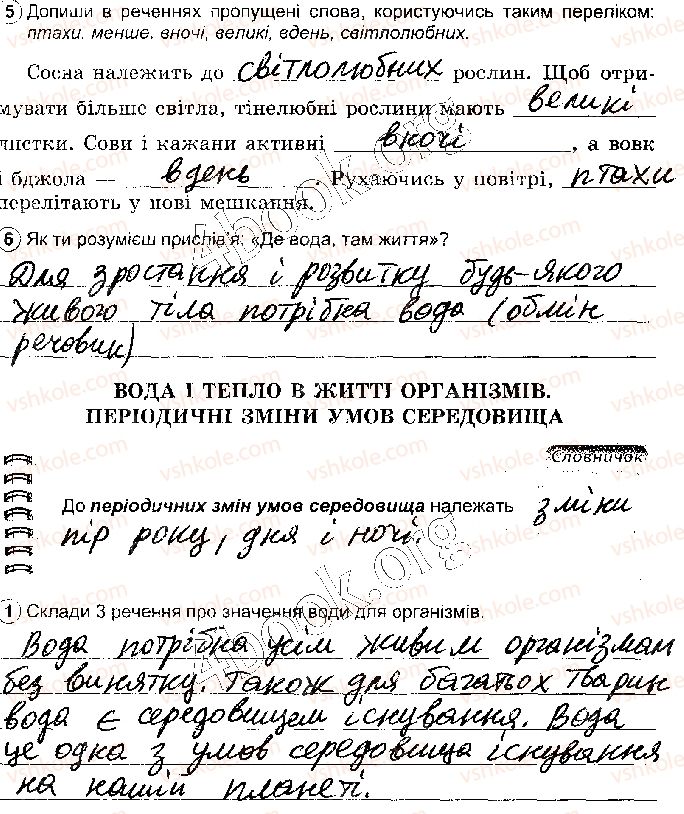 5 Допиши в реченнях пропущені слова, користуючись таким переліком:
птахи, менше, вночі, великі, вдень, світлолюбних.
Сосна належить до світлолюбних рослин. Щоб отри-
мувати більше світла, тінелюбні рослини мають великі
листки. Сови і кажани активні вночі, а вовк
і бджола — вдень. Рухаючись у повітрі, птахи
перелітають у нові мешкання.
6 Як ти розумієш прислів'я: «Де вода, там життя»?
Для зростання і розвитку будь-якого
живого тіла потрібна вода (обмін
речовин)
ВОДА І ТЕПЛО В ЖИТТІ ОРГАНІЗМІВ.
ПЕРІОДИЧНІ ЗМІНИ УМОВ СЕРЕДОВИЩА
Словничок
До періодичних змін умов середовища належать зміни
пір року, дня і ночі.
1 Склади 3 речення про значення води для організмів.
Вода потрібна усім живим організмам
без винятку. Також для багатьох тварин
вода є середовищем існування. Вода
це одна з умов середовища існування
на нашій планеті.